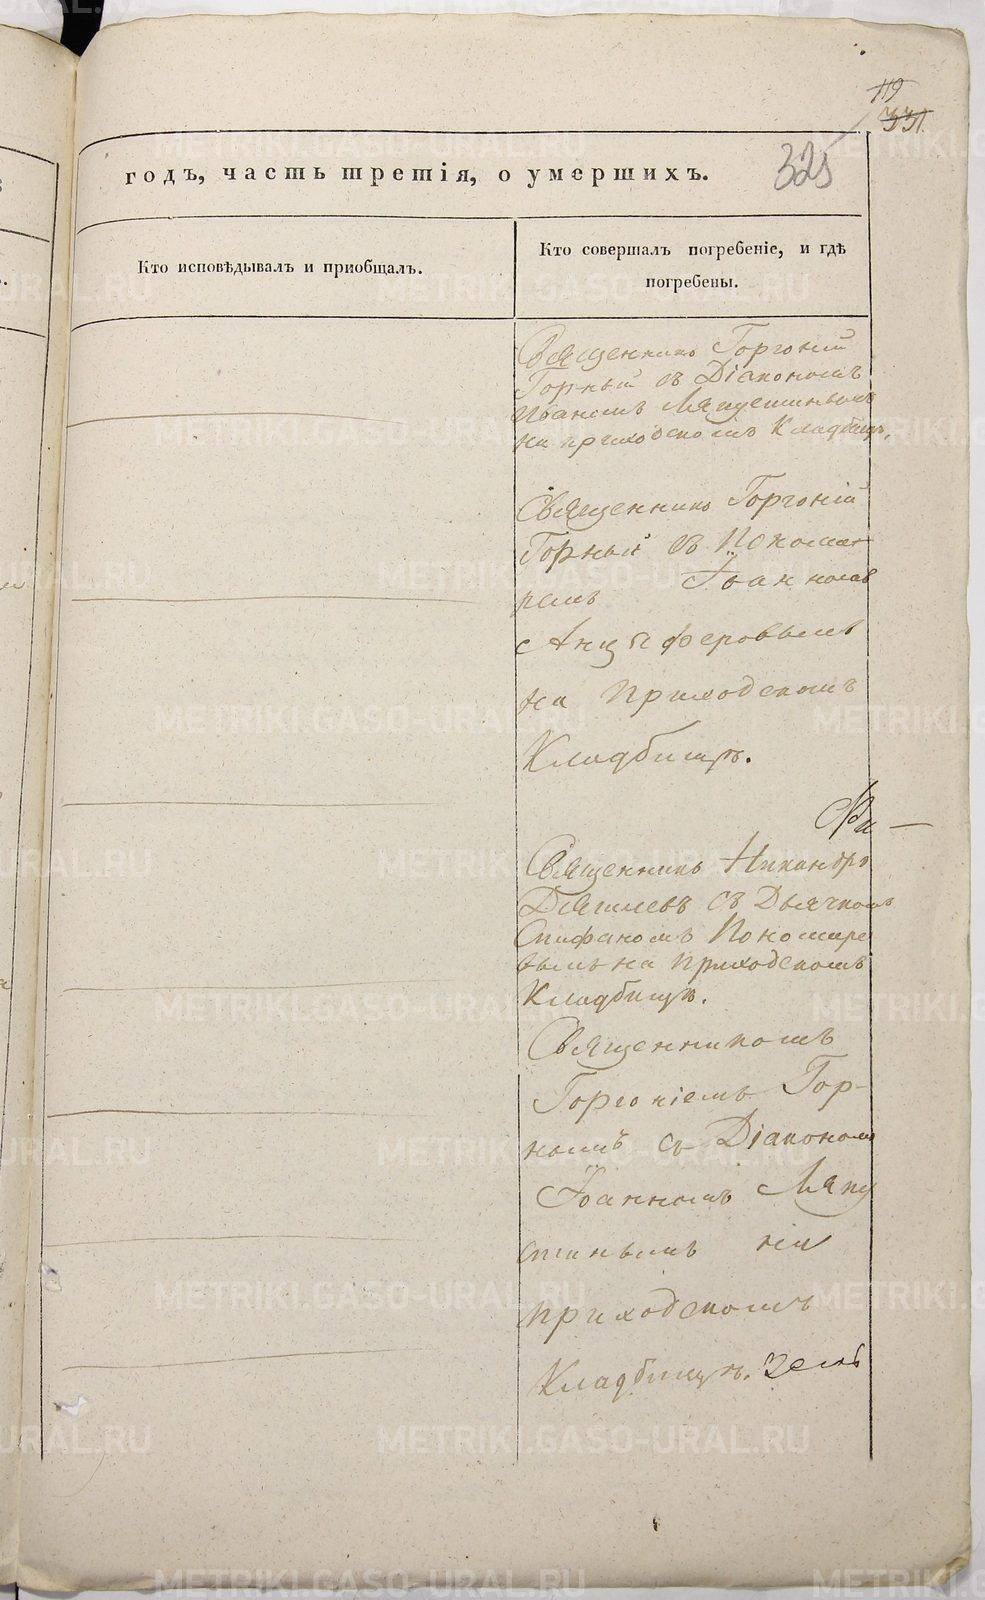 119
331.
325
годъ, часть третія, о умершихъ.
Кто исповѣдывалъ и приобщалъ.
Кто совершалъ погребеніе, и гдѣ
погребены.
Священникъ Горгоній
Горный съ Діакономъ
Иваномъ Ляпустинымъ
на приходскомъ Кладбищѣ.
Священникъ Горгоній
Горный съ Понома
ремъ Іоанномъ
Анциферовымъ
на Приходскомъ
Кладбищѣ.
Священникъ Никандръ
Дягилевъ съ Дьячкомъ
Епифаномъ Пономаре
вымъ на приходскомъ
Кладбищѣ.
Священникомъ
Горгоніемъ Гор-
нымъ съ Діакономъ
Іоанномъ Ляпу
стинымъ на
приходскомъ
Кладбищѣ.
METRIKI.GASO-URAL.RU